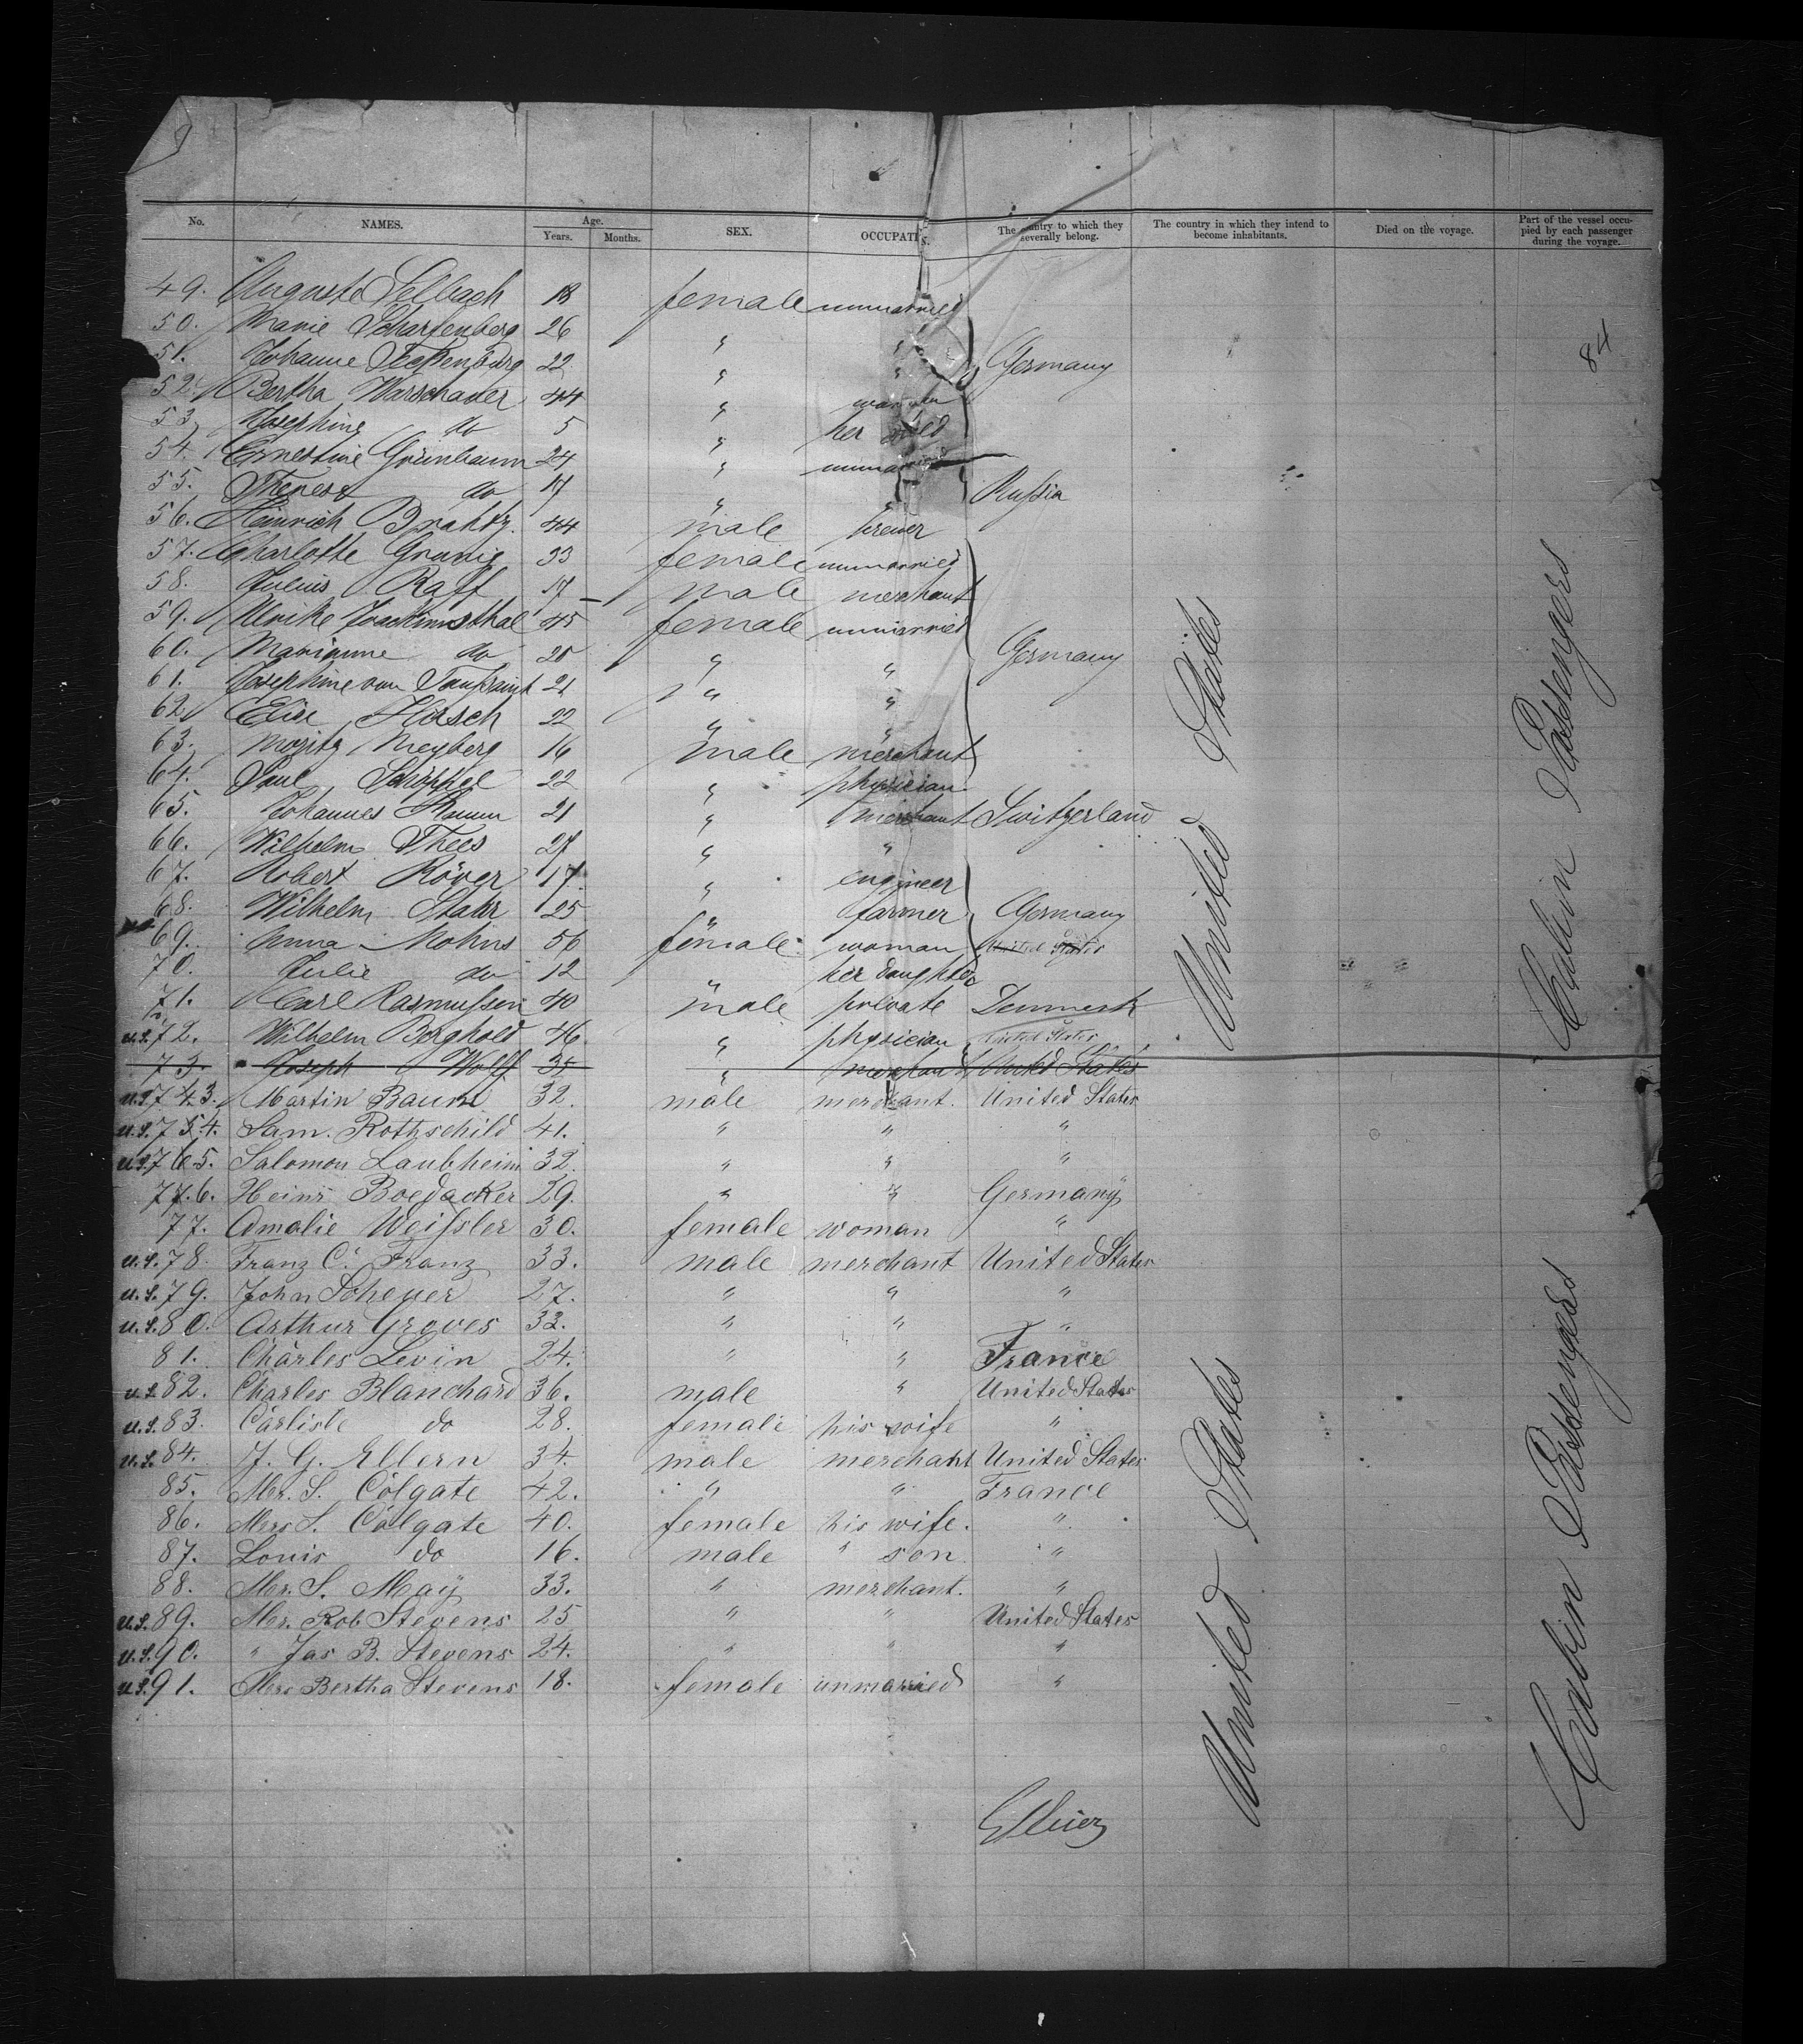 9
No. NAMES. Age. Years. Months. SEX. OCCUPATI S. The country to which they severally belong. The country in which they intend to become inhabitants. Died on the voyage. Part of the vessel occupied by each passenger during the voyage.
84
49. Auguste Selbach 18 female unmarried
50. Marie Scharfenberg 26 " "
51. Johanne Teckenburg 22 " " Germany
52. Bertha Warschauer 44 " woman
53. Josephine do 5 " her child
54. Ernestine Grünbaum 24 " unmarried
55. Therese do 17 " " Russia
56. Heinrich Brahtz. 44 male brewer
57. Charlotte Grunig 33 female unmarried
58. Julius Raff 17 male merchant
59. Ulrike Joachimsthal 45 female unmarried
60. Marianne do 20 " " Germany
61. Josephine von Toussaint 21 " "
62. Elise Hirsch 22 " "
63. Moritz Meyberg 16 male merchant
64. Paul Schippel 22 " physician
65. Johannes Kumm 21 " merchant Switzerland
66. Wilhelm Thees 27 " "
67. Robert Röver 17. " engineer
68. Wilhelm Stahr 25 " farmer Germany
69. Anna Mohns 56 female woman United States
70. Julie do 12 " her daughter
71. Carl Rasmussen 40 male private Denmark
U.S. 72. Wilhelm Berghold 46. " physician United States
73. Joseph Wolff 35 " merchant United States
U.S. 743. Martin Baum 32. male merchant. United States
U.S. 754. Sam. Rothschild 41. " " "
U.S. 765. Salomon Laubheim 32. " " "
77.6. Heinr Boedacker 29. " " Germany
77. Amalie Weissler 30. female woman "
U.S. 78. Franz C. Franz 33. male merchant United States
U.S. 79. John Scheuer 27. " " "
U.S. 80. Arthur Groves 32. " " "
81. Charles Levin 24. " " France
U.S. 82. Charles Blanchard 36. male " United States
U.S. 83. Carlisle do 28. female his wife "
U.S. 84. J. G. Ellern 34. male merchant United States
85. Mr. S. Colgate 42. " " France
86. Mrs S. Colgate 40. female his wife. "
87. Louis do 16. male " son "
88. Mr. S. May 33. " merchant. "
U.S. 89. Mr. Rob Stevens 25 " " United States
U.S. 90. " Jas B. Stevens 24. " " "
U.S. 91. Mrs Bertha Stevens 18. female unmarried "
United States
Cabin Passengers
United States
Cabin Passengers